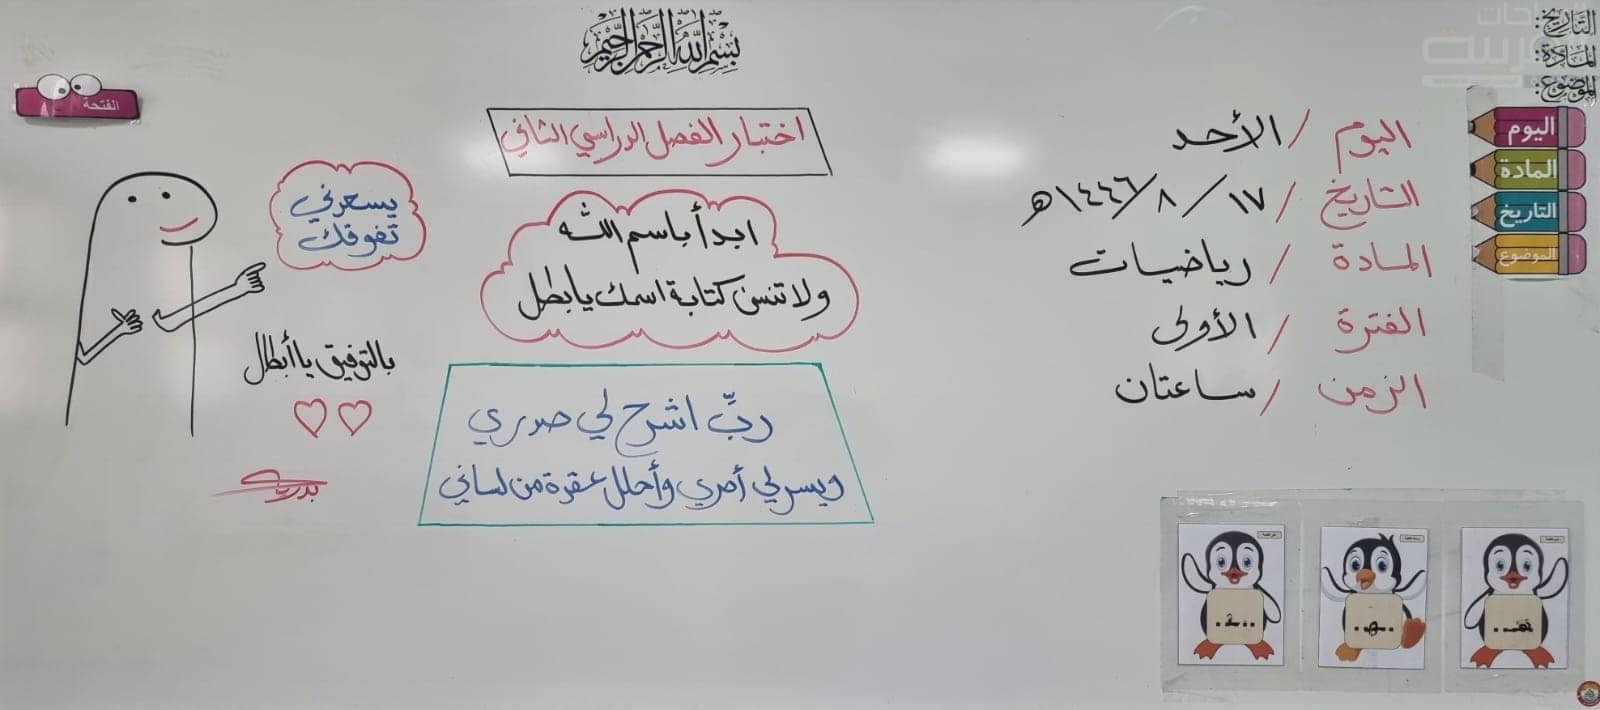 بسم الله الرحمن الرحيم
التاريخ:
المادة:
الموضوع:
اليوم
المادة
التاريخ
الموضوع
اليوم / الأحد
التاريخ / ١٧ / ٨ / ١٤٤٦هـ
المادة / رياضيات
الفترة / الأولى
الزمن / ساعتان
اختبار الفصل الدراسي الثاني
ابدأ باسم الله
ولا تنس كتابة اسمك يا بطل
ربِّ اشرح لي صدري
ويسر لي أمري وأحلل عقدة من لساني
الفتحة
يسعدني
تفوقك
بالتوفيق يا أبطال
هـ..
..ـهـ..